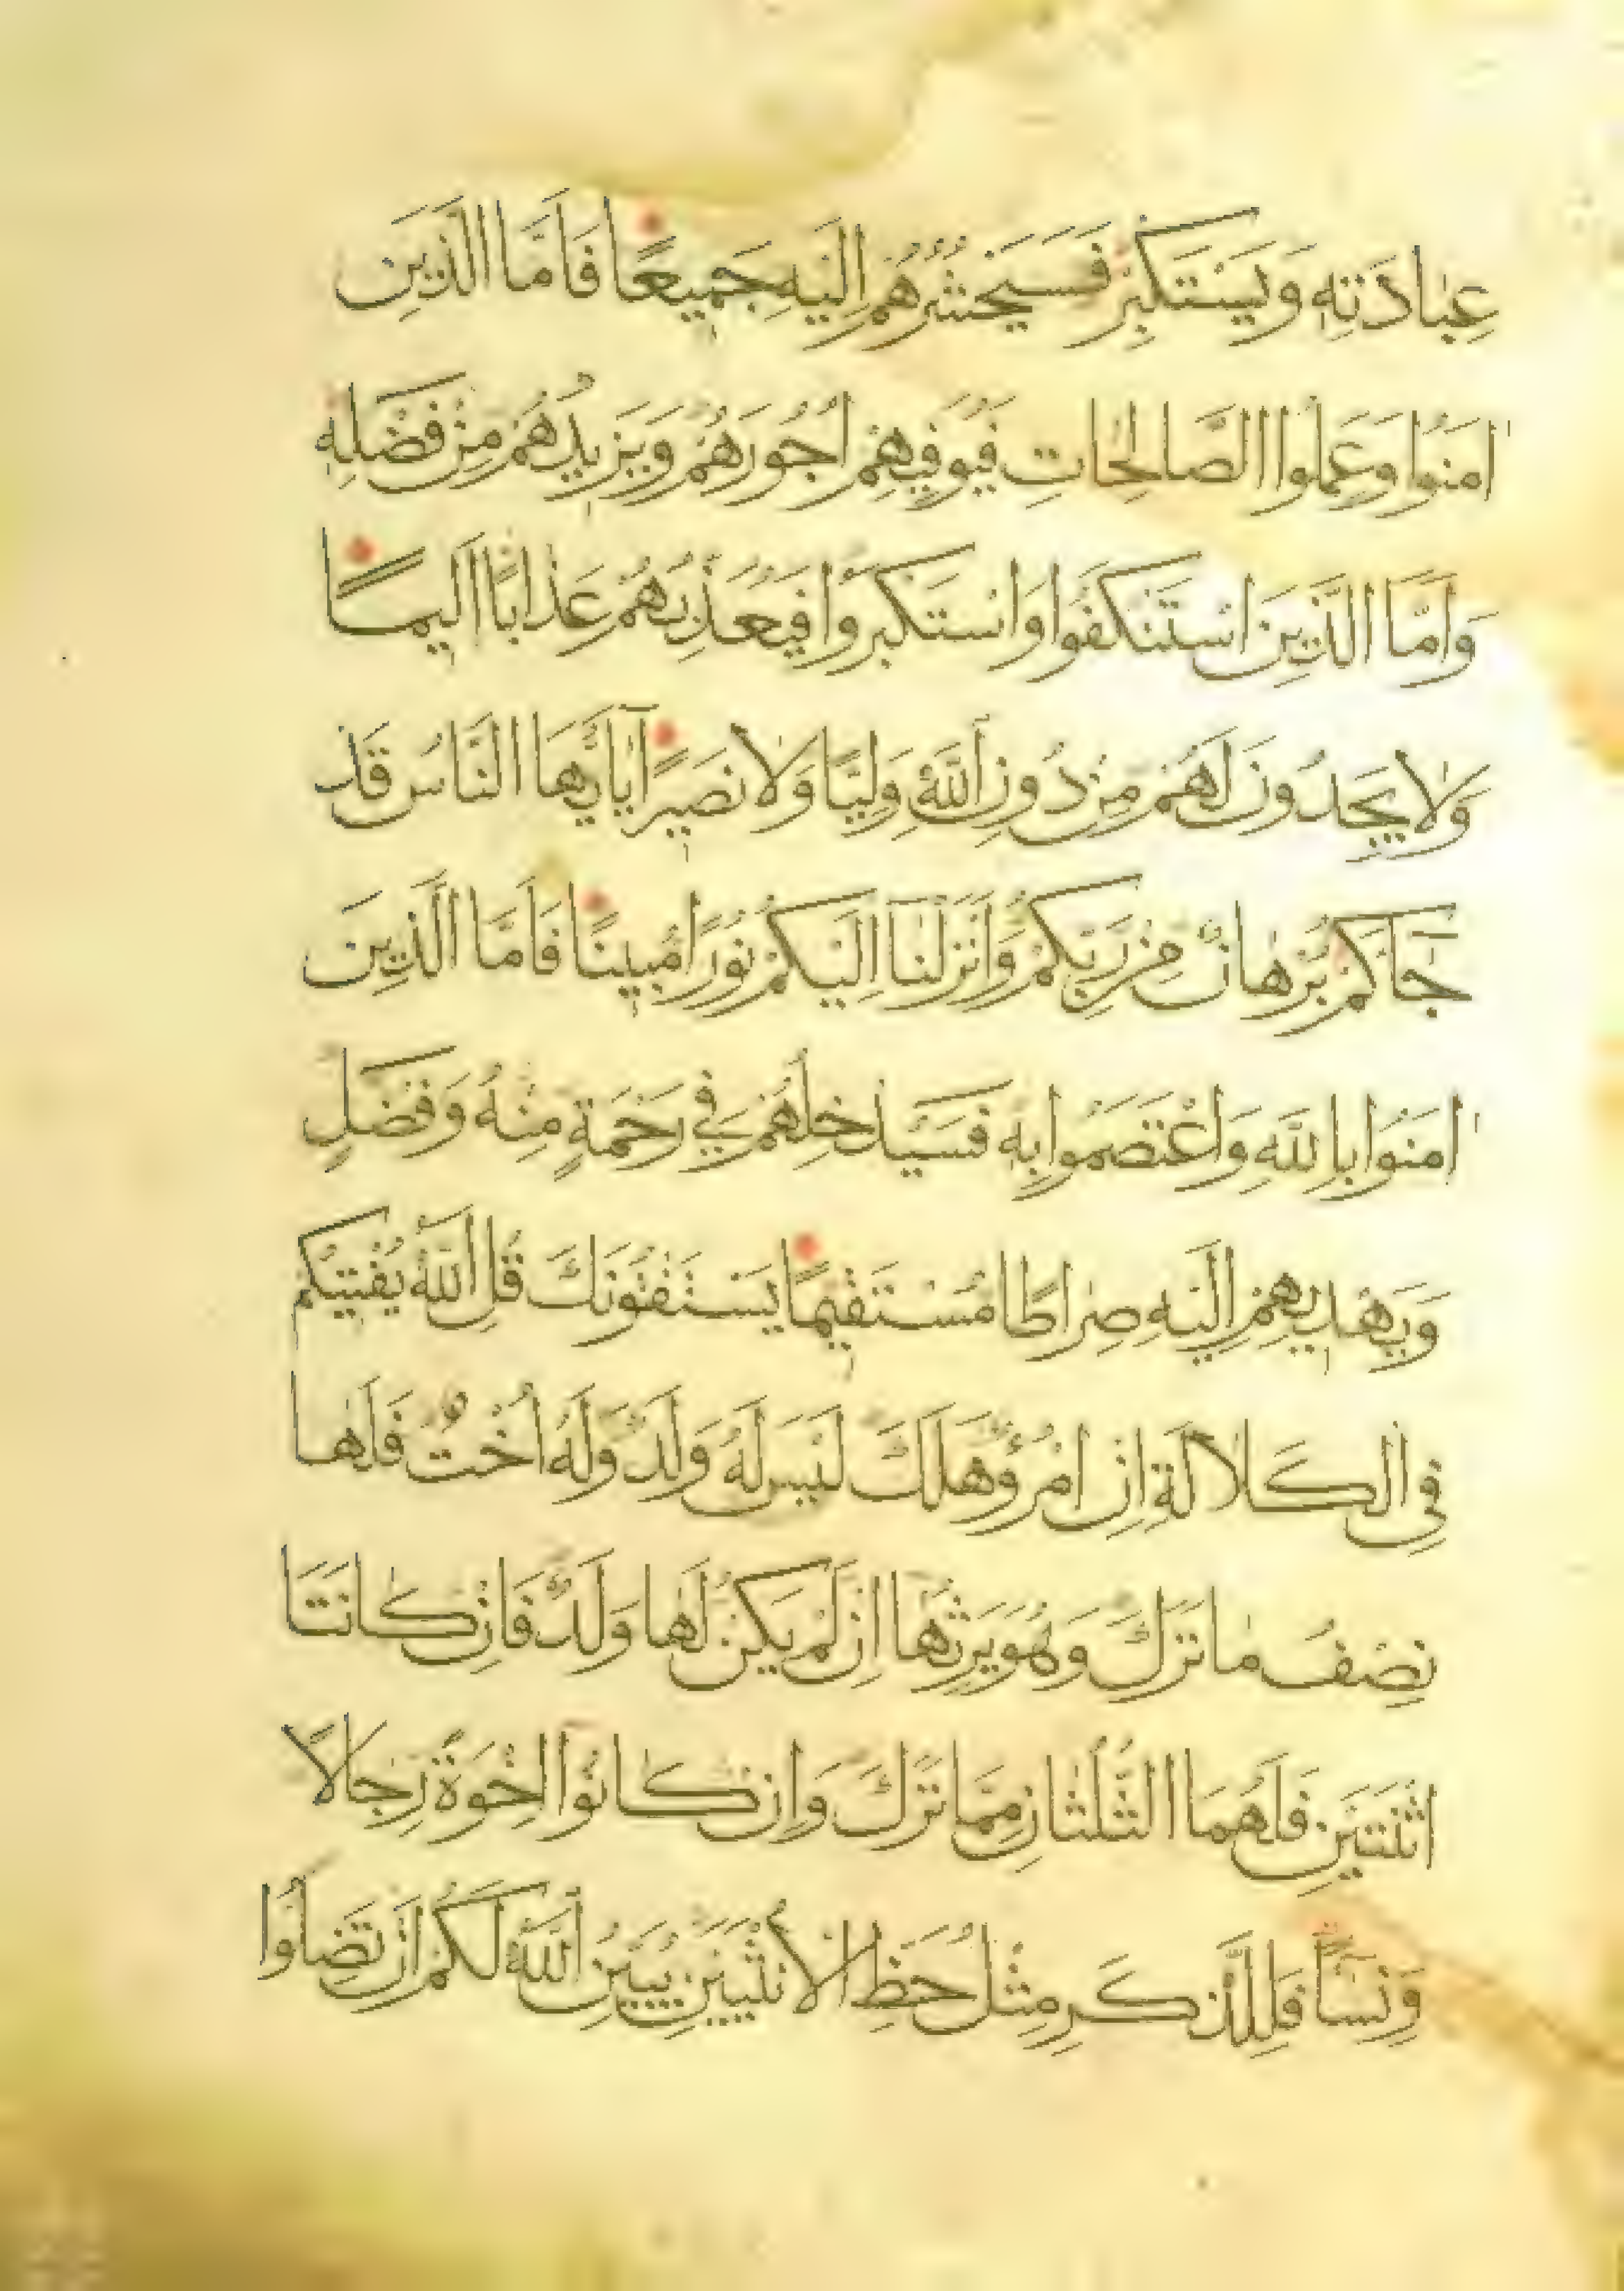 عِبَادَتِهِ وَيَسْتَكْبِرْ فَسَيَحْشُرُهُمْ اِلَيْهِ جَمِيعًا فَاَمَّا الَّذِينَ
اٰمَنُوا وَعَمِلُوا الصَّالِحَاتِ فَيُوَفِّيهِمْ اُجُورَهُمْ وَيَزِيدُهُمْ مِنْ فَضْلِهِ
وَاَمَّا الَّذِينَ اسْتَنْكَفُوا وَاسْتَكْبَرُوا فَيُعَذِّبُهُمْ عَذَابًا اَلِيمًا
وَلَا يَجِدُونَ لَهُمْ مِنْ دُونِ اللَّهِ وَلِيًّا وَلَا نَصِيرًا يَا اَيُّهَا النَّاسُ قَدْ
جَاۤكُمْ بُرْهَانٌ مِنْ رَبِّكُمْ وَاَنْزَلْنَا اِلَيْكُمْ نُورًا مُبِينًا فَاَمَّا الَّذِينَ
اٰمَنُوا بِاللَّهِ وَاعْتَصَمُوا بِهِ فَسَيُدْخِلُهُمْ فِي رَحْمَةٍ مِنْهُ وَفَضْلٍ
وَيَهْدِيهِمْ اِلَيْهِ صِرَاطًا مُسْتَقِيمًا يَسْتَفْتُونَكَ قُلِ اللَّهُ يُفْتِيكُمْ
فِي الْكَلَالَةِ اِنِ امْرُؤٌ هَلَكَ لَيْسَ لَهُ وَلَدٌ وَلَهُ اُخْتٌ فَلَهَا
نِصْفُ مَا تَرَكَ وَهُوَ يَرِثُهَا اِنْ لَمْ يَكُنْ لَهَا وَلَدٌ فَاِنْ كَانَتَا
اثْنَتَيْنِ فَلَهُمَا الثُّلُثَانِ مِمَّا تَرَكَ وَاِنْ كَانُوا اِخْوَةً رِجَالًا
وَنِسَاۤءً فَلِلذَّكَرِ مِثْلُ حَظِّ الْاُنْثَيَيْنِ يُبَيِّنُ اللَّهُ لَكُمْ اَنْ تَضِلُّوا